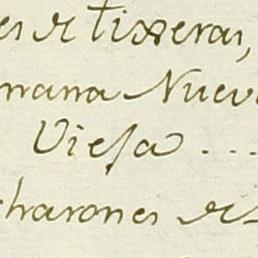 es de tixeras,
mana Nuev
Viesa ...
charones de